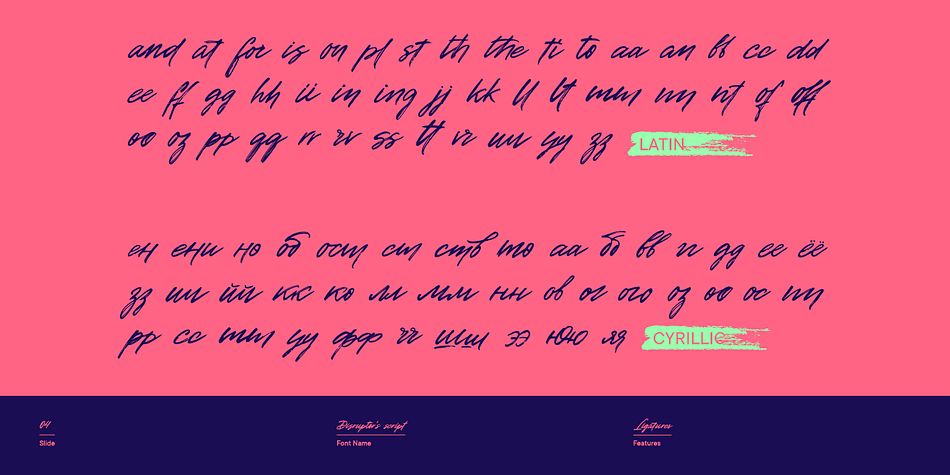 and at for is on pl st th the ti to aa an bb cc dd
ee ff gg hh ii in ing jj kk ll lt mm nn nt of off
oo oz pp gg rr rv ss tt vr uu yy zz LATIN
ен ени но об ост ст ств то аа бб вв гг дд ее ёё
зз ии йй кк ко лл мм нн ов ог ого оз оо ос пп
рр сс тт уу фф чч шш ээ юю ля CYRILLIC
04 Disruptor's script Ligatures
Slide Font Name Features